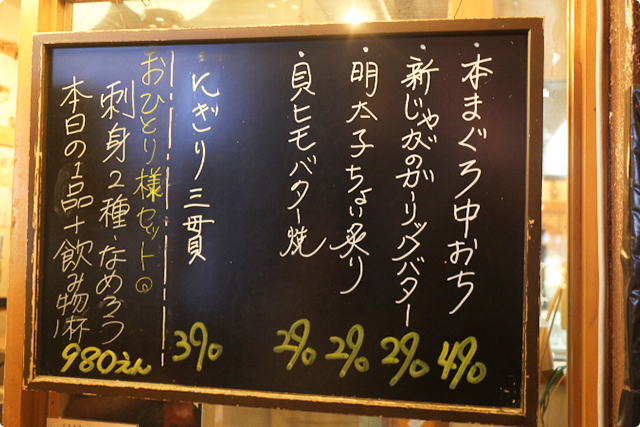 ・本まぐろ中おち 490
・新じゃがのガーリックバター 290
・明太子ちょい炙り 290
・貝ヒモバター焼 290
にぎり三貫 390
おひとり様セット
刺身2種・なめろう
本日の1品+飲み物1杯
980えん